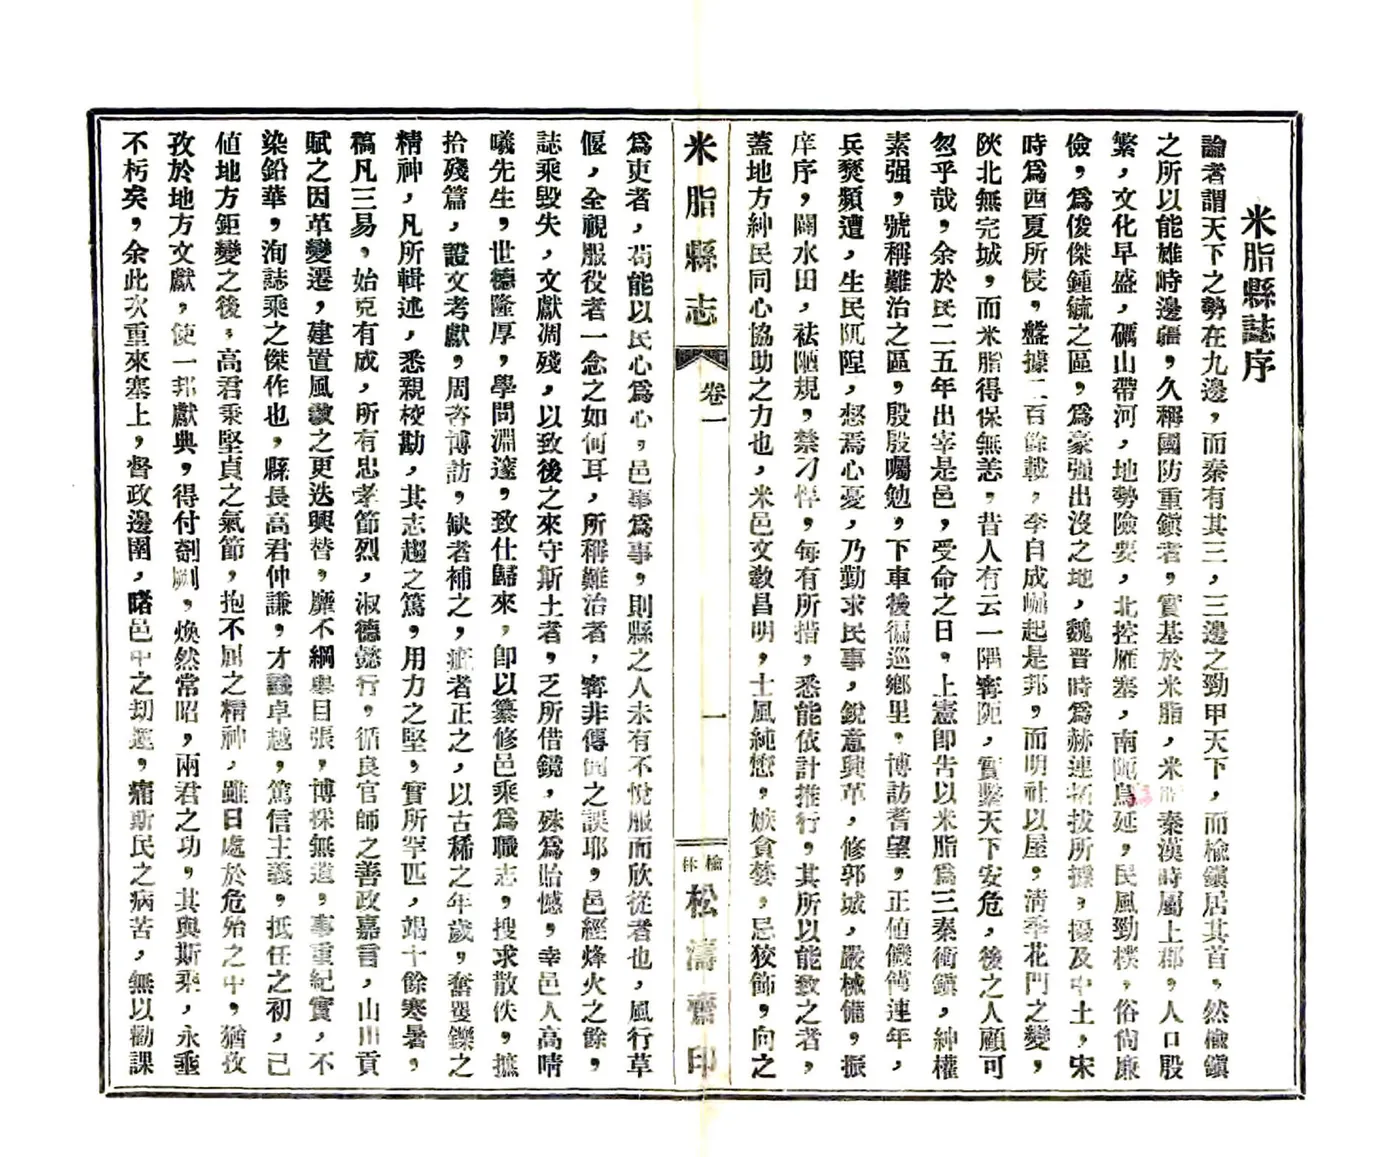 米脂縣誌序
論者謂天下之勢在九邊，而秦有其三，三邊之勁甲天下，而榆鎭居其首，然榆鎭
之所以能雄峙邊疆，久稱國防重鎭者，實基於米脂，米脂秦漢時屬上郡，人口殷
繁，文化早盛，礪山帶河，地勢險要，北控雁塞，南阨烏延，民風勁樸，俗尙廉
儉，爲俊傑鍾毓之區，爲豪强出沒之地，魏晋時爲赫連拓拔所據，擾及中土，宋
時爲西夏所侵，盤據二百餘載，李自成崛起是邦，而明社以屋，淸季花門之變，
陜北無完城，而米脂得保無恙，昔人有云一隅寗阨，實繫天下安危，後之人顧可
忽乎哉，余於民二五年出宰是邑，受命之日，上憲卽告以米脂爲三秦衝鎭，紳權
素强，號稱難治之區，殷殷囑勉，下車後徧巡鄉里，博訪耆望，正值饑饉連年，
兵燹頻遭，生民阢隉，惄焉心憂，乃勤求民事，銳意興革，修郭城，嚴械備，振
庠序，闢水田，祛陋規，禁刁悍，每有所措，悉能依計推行，其所以能致之者，
蓋地方紳民同心協助之力也，米邑文敎昌明，士風純慤，嫉貪婪，忌狡飾，向之
米脂縣志
卷一
一
榆林松濤齋印
爲吏者，苟能以民心爲心，邑事爲事，則縣之人未有不悅服而欣從者也，風行草
偃，全視服役者一念之如何耳，所稱難治者，寗非傳聞之誤耶，邑經烽火之餘，
誌乘毀失，文獻凋殘，以致後之來守斯土者，乏所借鏡，殊爲貽憾，幸邑人高晴
曦先生，世德隆厚，學問淵邃，致仕歸來，卽以纂修邑乘爲職志，搜求散佚，摭
拾殘篇，證文考獻，周咨博訪，缺者補之，疵者正之，以古稀之年歲，奮矍鑠之
精神，凡所輯述，悉親校勘，其志趨之篤，用力之堅，實所罕匹，竭十餘寒暑，
稿凡三易，始克有成，所有忠孝節烈，淑德懿行，循良官師之善政嘉言，山川貢
賦之因革變遷，建置風敎之更迭興替，靡不綱舉目張，博採無遺，事重紀實，不
染鉛華，洵誌乘之傑作也，縣長高君仲謙，才識卓越，篤信主義，抵任之初，已
値地方鉅變之後，高君秉堅貞之氣節，抱不屈之精神，雖日處於危殆之中，猶孜
孜於地方文獻，使一邦獻典，得付剞劂，煥然常昭，兩君之功，其與斯乘，永垂
不朽矣，余此次重來塞上，督政邊圉，睹邑中之刧運，痛斯民之病苦，無以勸課